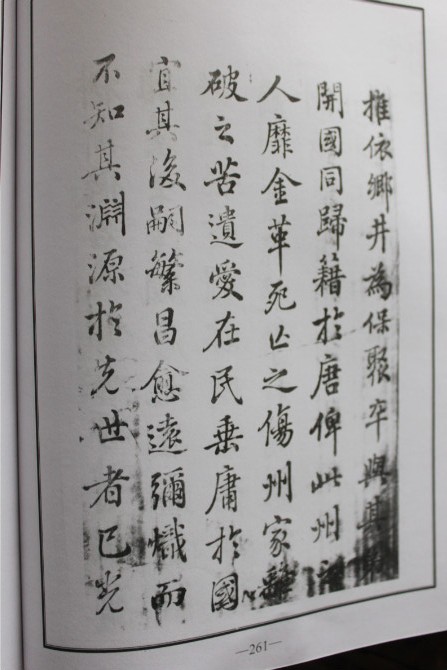 推依鄉井為保聚卒與其
開國同歸籍於唐俾此州
人靡金革死亡之傷州家
破之苦遺愛在民垂庸於國
宜其後嗣繁昌愈遠彌熾而
不知其淵源於先世者已光
—261—